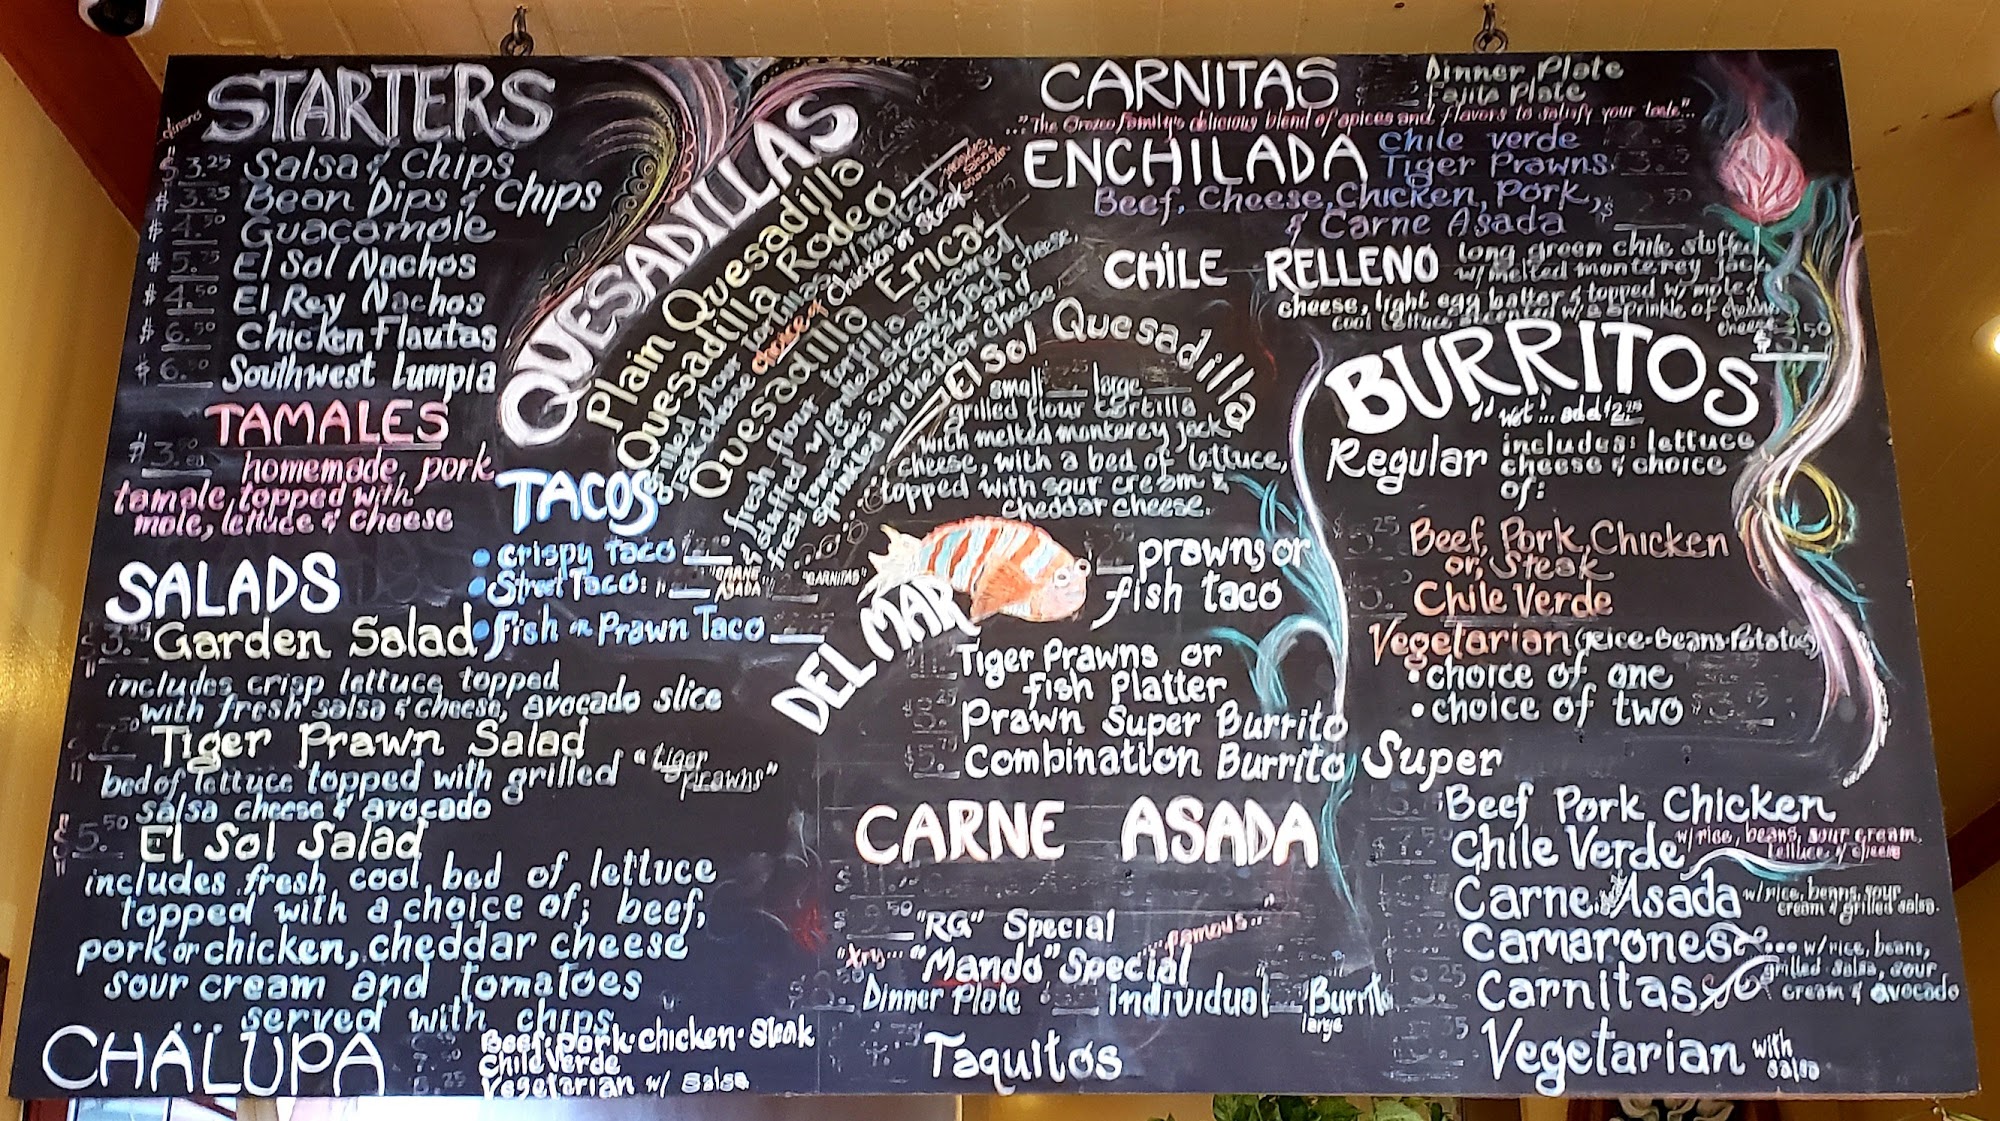 STARTERS
dinero
$3.25 Salsa & Chips
$3.75 Bean Dips & Chips
$4.50 Guacamole
$5.75 El Sol Nachos
$4.50 El Rey Nachos
$6.50 Chicken Flautas
$6.50 Southwest Lumpia
TAMALES
$3.50 ea homemade, pork
tamale, topped with
mole, lettuce & cheese
SALADS
3.25 Garden Salad
includes crisp lettuce topped
with fresh salsa & cheese, avocado slice
7.50 Tiger Prawn Salad
bed of lettuce topped with grilled "tiger prawns"
salsa cheese & avocado
5.50 El Sol Salad
includes fresh cool bed of lettuce
topped with a choice of; beef,
pork or chicken, cheddar cheese
sour cream and tomatoes
... served with chips
CHALUPA
Beef · Pork · chicken · Steak
Chile Verde
Vegetarian w/ salsa
QUESADILLAS
Plain Quesadilla
Quesadilla Rodeo
grilled flour tortillas w/ melted
Jack cheese choice of Chicken or steak
Quesadilla Erica
fresh flour tortilla steamed
& stuffed w/ grilled steak, Jack cheese,
fresh tomatoes, sour cream and
sprinkled w/ cheddar cheese
El Sol Quesadilla
small large
grilled flour tortilla
with melted monterey jack
cheese, with a bed of lettuce,
topped with sour cream &
cheddar cheese.
TACOS
crispy Taco
Street Taco: "CARNE ASADA" "CARNITAS"
fish or Prawn Taco
DEL MAR
prawns or
fish taco
Tiger Prawns or
fish Platter
Prawn Super Burrito
$5.75 Combination Burrito
CARNE ASADA
"RG" Special
"Mando" Special ....famous..."
Dinner Plate individual Burrito
large
Taquitos
CARNITAS
Dinner Plate
Fajita Plate
..."The Orozco family's delicious blend of spices and flavors to satisfy your taste"
ENCHILADA
Chile verde
Tiger Prawns
Beef, Cheese, Chicken, Pork,
& Carne Asada
CHILE RELLENO
long green chile stuffed
w/ melted monterey jack
cheese, light egg batter & topped w/ mole &
cool lettuce w/ a sprinkle of cheddar
cheese
BURRITOS
"wet"... add $2.25
Regular
includes: lettuce
cheese & choice
of:
$5.25 Beef, Pork, Chicken
or, Steak
Chile Verde
Vegetarian (Rice-Beans-Potatoe)
• choice of one
• choice of two
Super
Beef Pork Chicken
Chile Verde w/ rice, beans, sour cream,
lettuce, & cheese
Carne Asada w/ rice, beans, sour
cream & grilled salsa.
Camarones ... w/ rice, beans,
grilled salsa, sour
cream & avocado
Carnitas
Vegetarian with
salsa